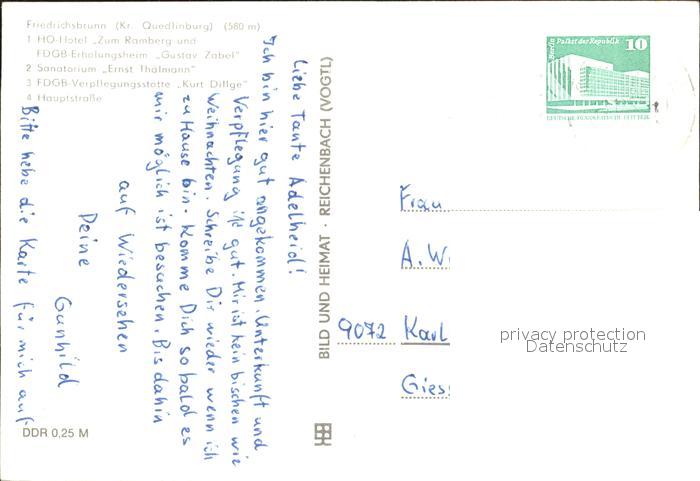 Friedrichsbrunn (Kr. Quedlinburg) (580 m)
1 HO-Hotel „Zum Ramberg und
FDGB-Erholungsheim „Gustav Zabel"
2 Sanatorium „Ernst Thälmann"
3 FDGB-Verpflegungsstätte „Kurt Dillge"
4 Hauptstraße
Liebe Tante Adelheid!
Ich bin hier gut angekommen. Unterkunft und
Verpflegung ist gut. Mir ist kein bischen wie
Weihnachten. Schreibe Dir wieder wenn ich
zu Hause bin. Komme Dich so bald es
mir möglich ist besuchen. Bis dahin
auf Wiedersehen
Deine
Gunhild
Bitte hebe die Karte für mich auf.
DDR 0,25 M
BILD UND HEIMAT · REICHENBACH (VOGTL)
Berlin Palast der Republik 10
DEUTSCHE DEMOKRATISCHE REPUBLIK
Frau
A. Wi
9072 Karl
Gies
privacy protection
Datenschutz